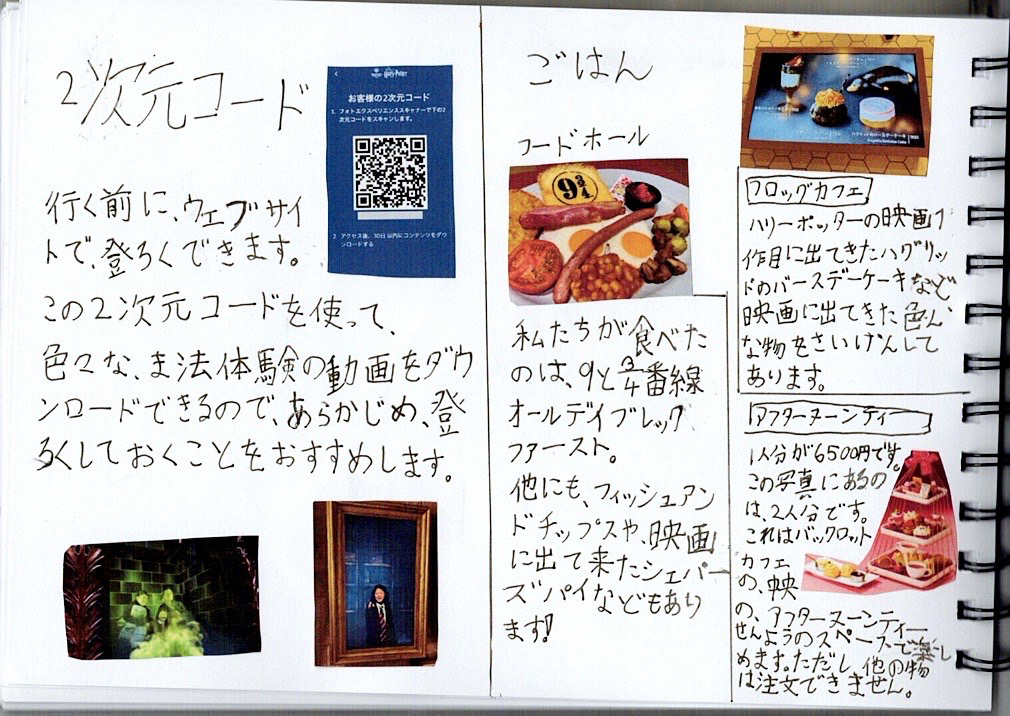 2次元コード
Harry Potter
お客様の2次元コード
1. フォトエクスペリエンススキャナーで下の2
次元コードをスキャンします。
2. アクセス後、10日以内にコンテンツをダウ
ンロードする
行く前に、ウェブサイ
トで、登ろくできます。
この2次元コードを使って、
色々な、ま法体験の動画をダウ
ンロードできるので、あらかじめ、登
ろくしておくことをおすすめします。
ごはん
フードホール
9 3/4
私たちが食べた
のは、9と3/4番線
オールデイブレック
ファースト。
他にも、フィッシュアン
ドチップスや、映画
に出て来たシェパー
ズパイなどもあり
ます!
フロッグカフェ
ハリーポッターの映画1
作目に出てきたハグリッ
ドのバースデーケーキなど、
映画に出てきた色ん
な物をさいげんして
あります。
アフターヌーンティー
1人分が6500円です。
この写真にあるの
は、2人分です。
これはバックロット
カフェ
の、映
の、アフターヌーンティー
せんようのスペースで楽し
めます。ただし、他の物
は注文できません。